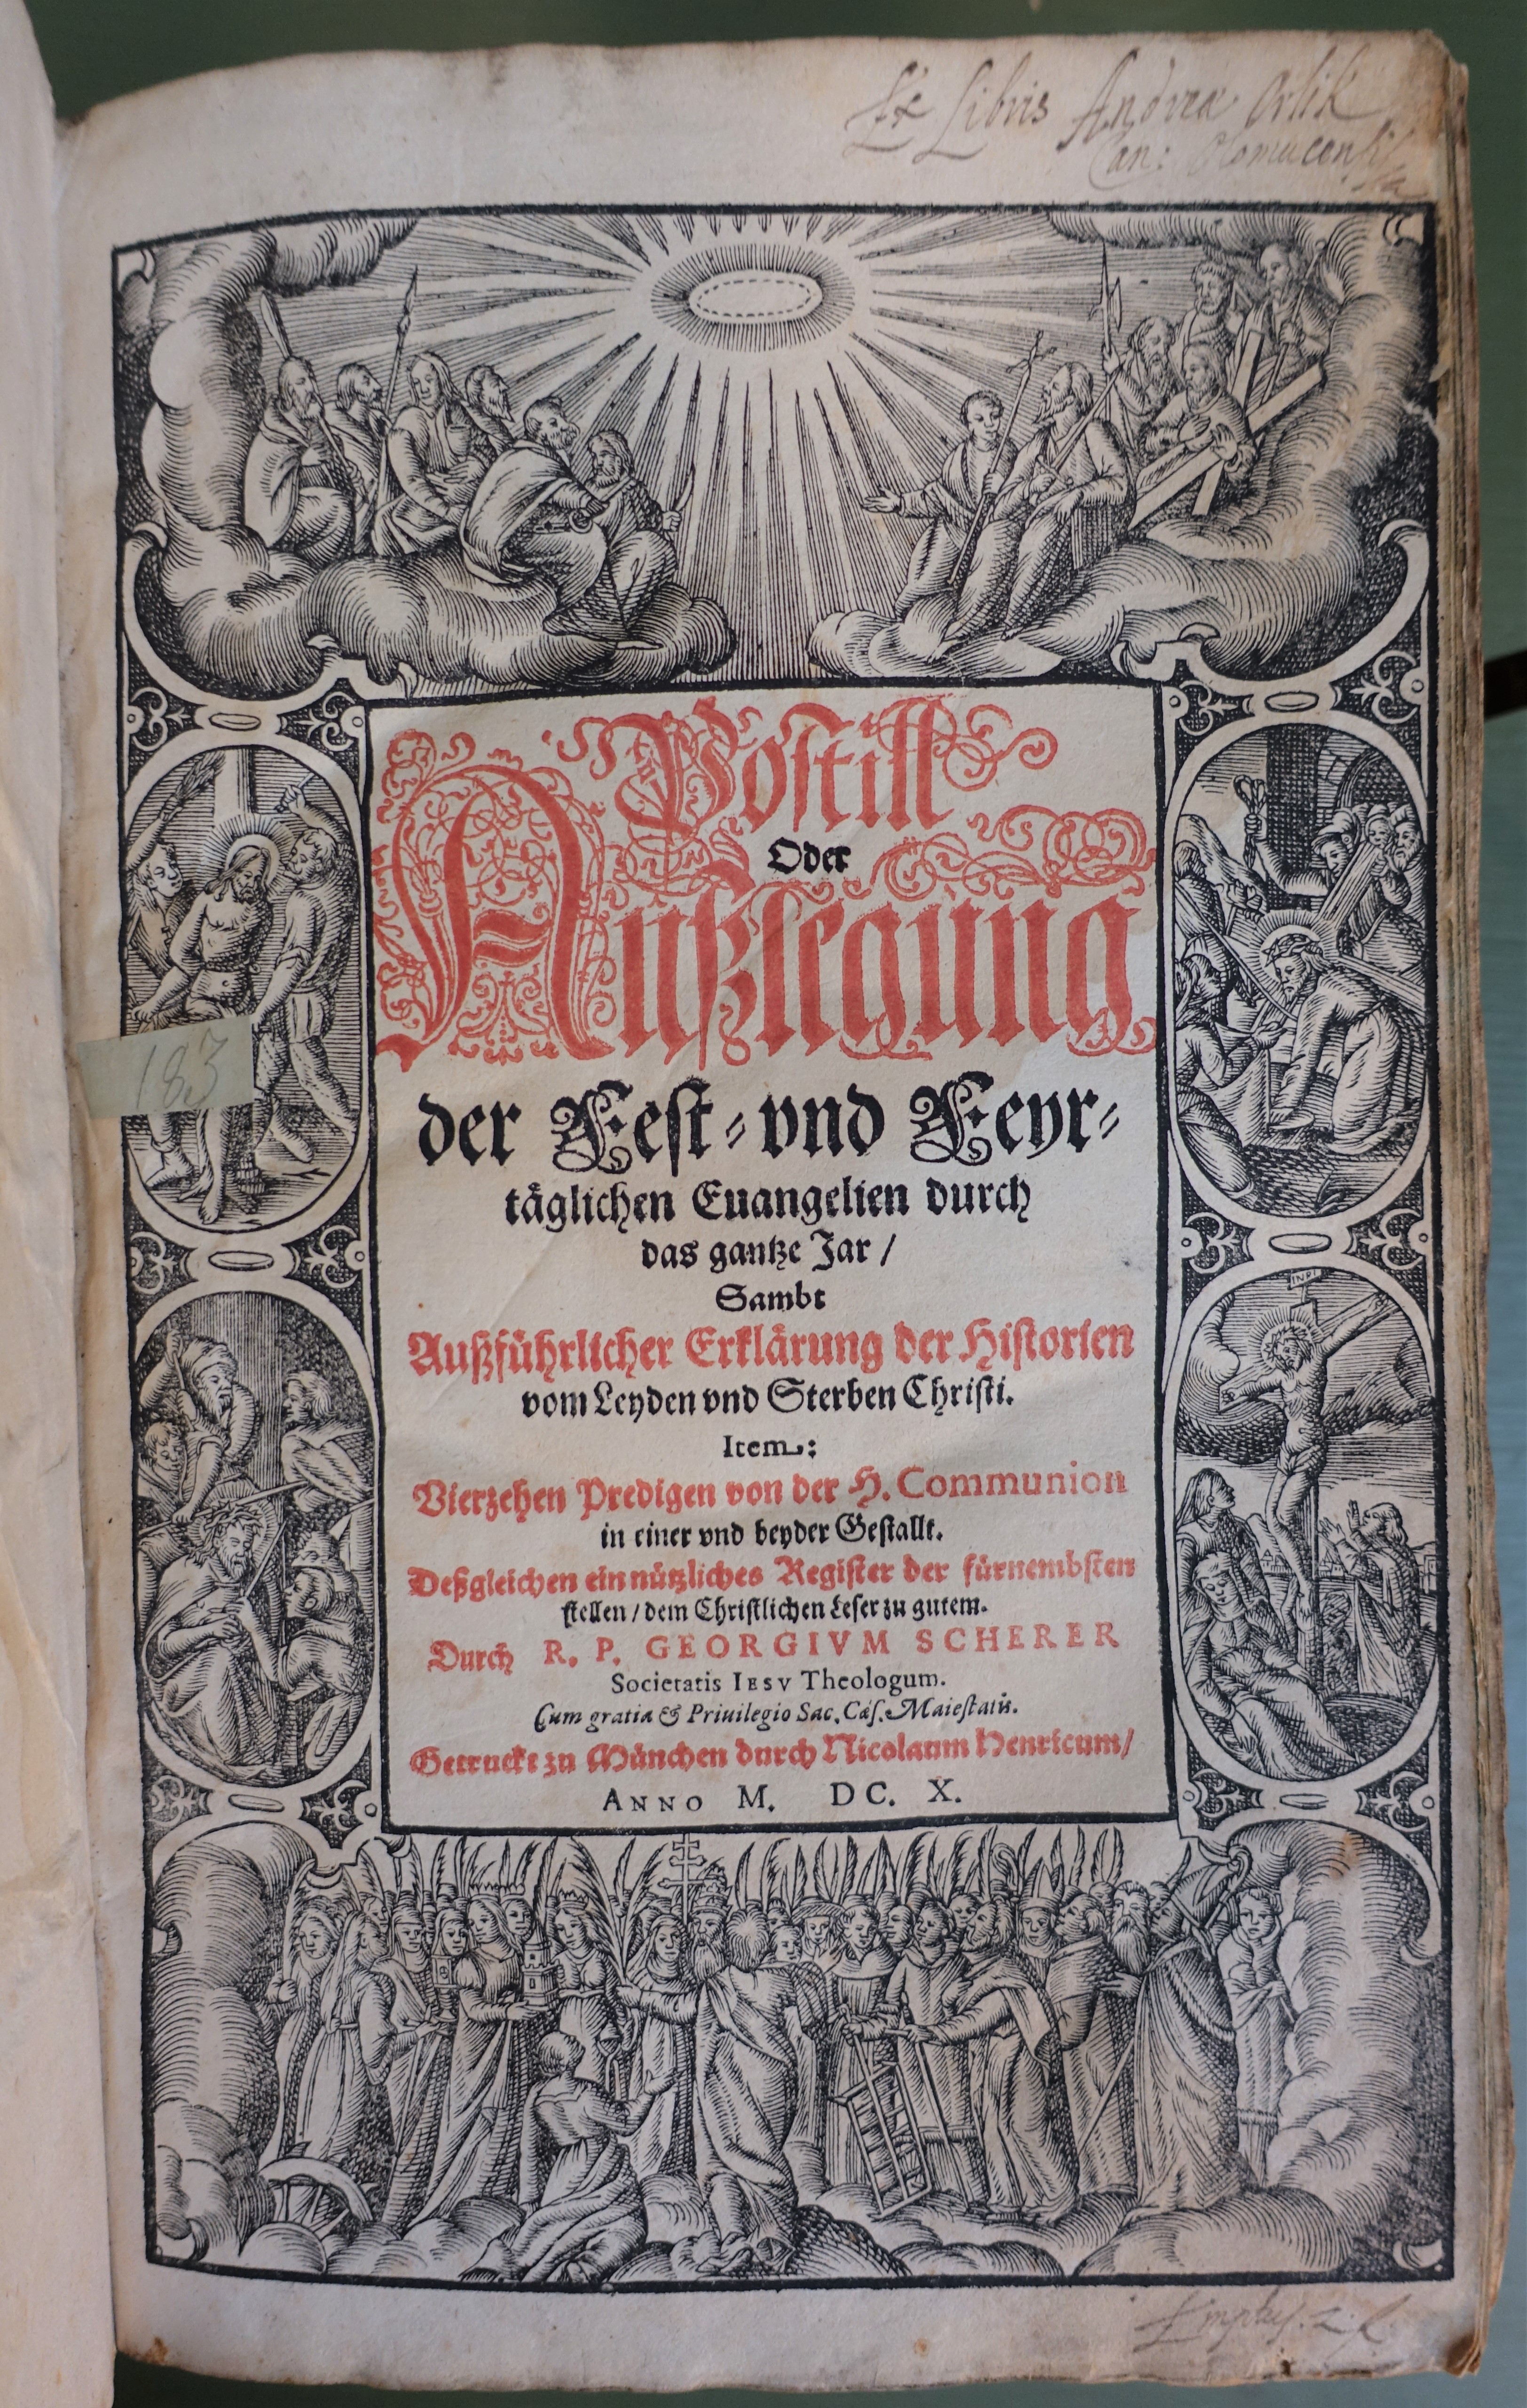 Ex Libris Andreæ Orlik
Can: Olomucensis
Postill
Oder
Außlegung
der Fest- vnd Feyr-
täglichen Euangelien durch
das gantze Jar /
Sambt
Außführlicher Erklärung der Historien
vom Leyden vnd Sterben Christi.
Item:
Vierzehen Predigen von der H. Communion
in einer vnd beyder Gestallt.
Deßgleichen ein nützliches Register der fürnembsten
stellen / dem Christlichen Leser zu gutem.
Durch R. P. GEORGIVM SCHERER
Societatis IESV Theologum.
Cum gratia & Priuilegio Sac. Cæs. Maiestatis.
Getruckt zu München durch Nicolaum Henricum /
ANNO M. DC. X.
183
INRI